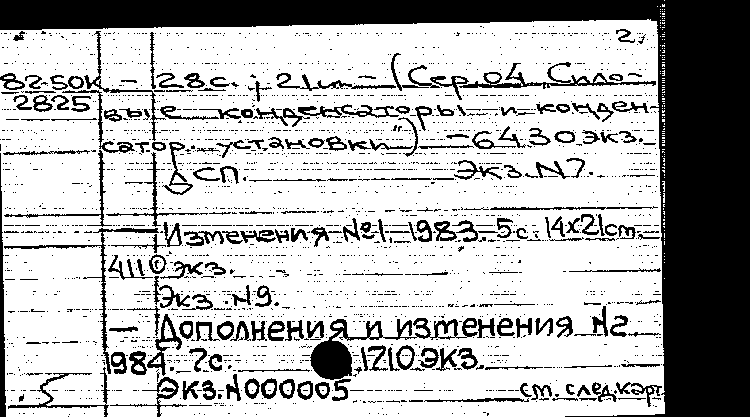 2.
8250К – 28с.; 21см – (Сер.04 „Сило-
2825 вые конденсаторы и конден-
сатор. установки") – 6430 экз.
ДСП. Экз.N7.
— Изменения №1. 1983. 5с. 14x21см.
4110 экз.
Экз.N9.
— Дополнения и изменения N2.
1984. 7с. 1710 экз.
.5 Экз.N000005 см. след.карт